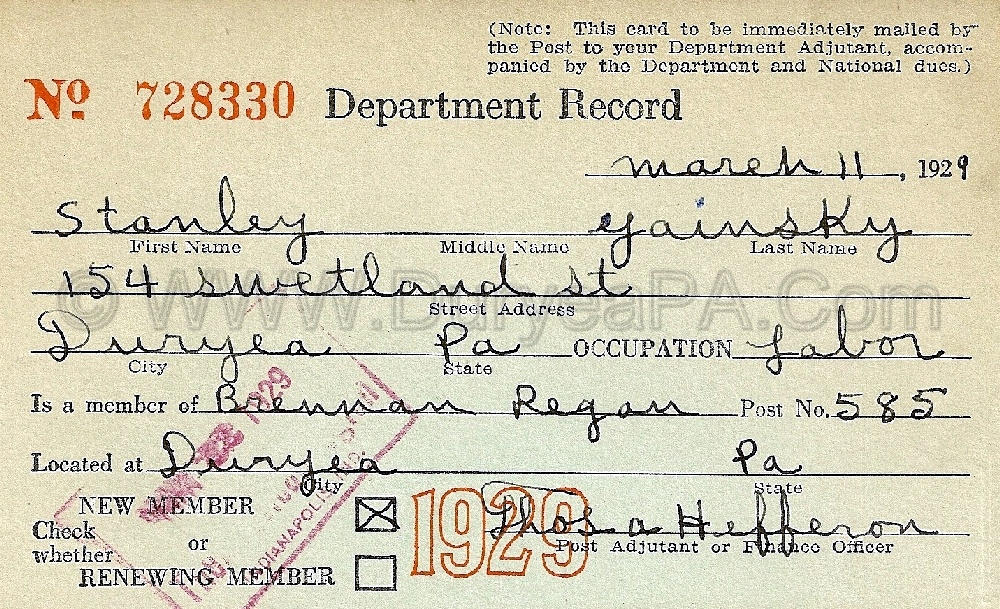 (Note: This card to be immediately mailed by
the Post to your Department Adjutant, accom-
panied by the Department and National dues.)
No 728330 Department Record
march 11, 1929
Stanley yainsky
First Name Middle Name Last Name
154 swetland st
Street Address
Duryea Pa OCCUPATION Labor
City State
Is a member of Brennan Regan Post No. 585
Located at Duryea Pa
City State
NEW MEMBER
Check whether or
RENEWING MEMBER
1929 Thos a Hefferon
Post Adjutant or Finance Officer
© WWW.DuryeaPA.Com
1929
INDIANAPOLIS